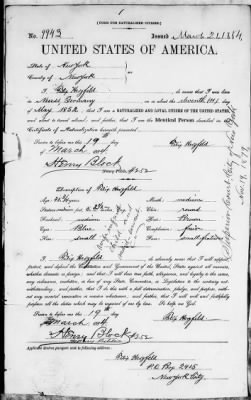 (FORM FOR NATURALIZED CITIZEN.)
No. 9943 Issued March 21/84
UNITED STATES OF AMERICA.
State of New York
County of New York
I, Felix Heyfeld, do swear that I was born
in Germany on or about the Seventh day
of May 1852; that I am a NATURALIZED AND LOYAL CITIZEN OF THE UNITED STATES,
and about to travel abroad; and further, that I am the Identical Person described in the
Certificate of Naturalization herewith presented.
Sworn to before me this 19th
of March 1884 Felix Heyfeld
Henry Block
Notary Public #252
Description of Felix Heyfeld
Age: Mouth: medium
Stature: Chin: round
Forehead: medium Hair: Brown
Eyes: Blue Complexion: fair
Nose: small Face:
I, Felix Heyfeld, do solemnly swear that I will support,
protect, and defend the Constitution and Government of the United States against all enemies,
whether domestic or foreign; and that I will bear true faith, allegiance, and loyalty to the same,
any ordinance, resolution, or law of any State, Convention, or Legislature to the contrary not-
withstanding; and further, that I do this with a full determination, pledge, and purpose, without
any mental reservation or evasion whatsoever; and further, that I will well and faithfully
perform all the duties which may be required of me by law. So help me God.
Sworn to before me this 19th
of March 1884 Felix Heyfeld
Henry Block #252
Notary Public
Applicant desires passport sent to following address:
Felix Heyfeld
P.O. Box 2415
New York City